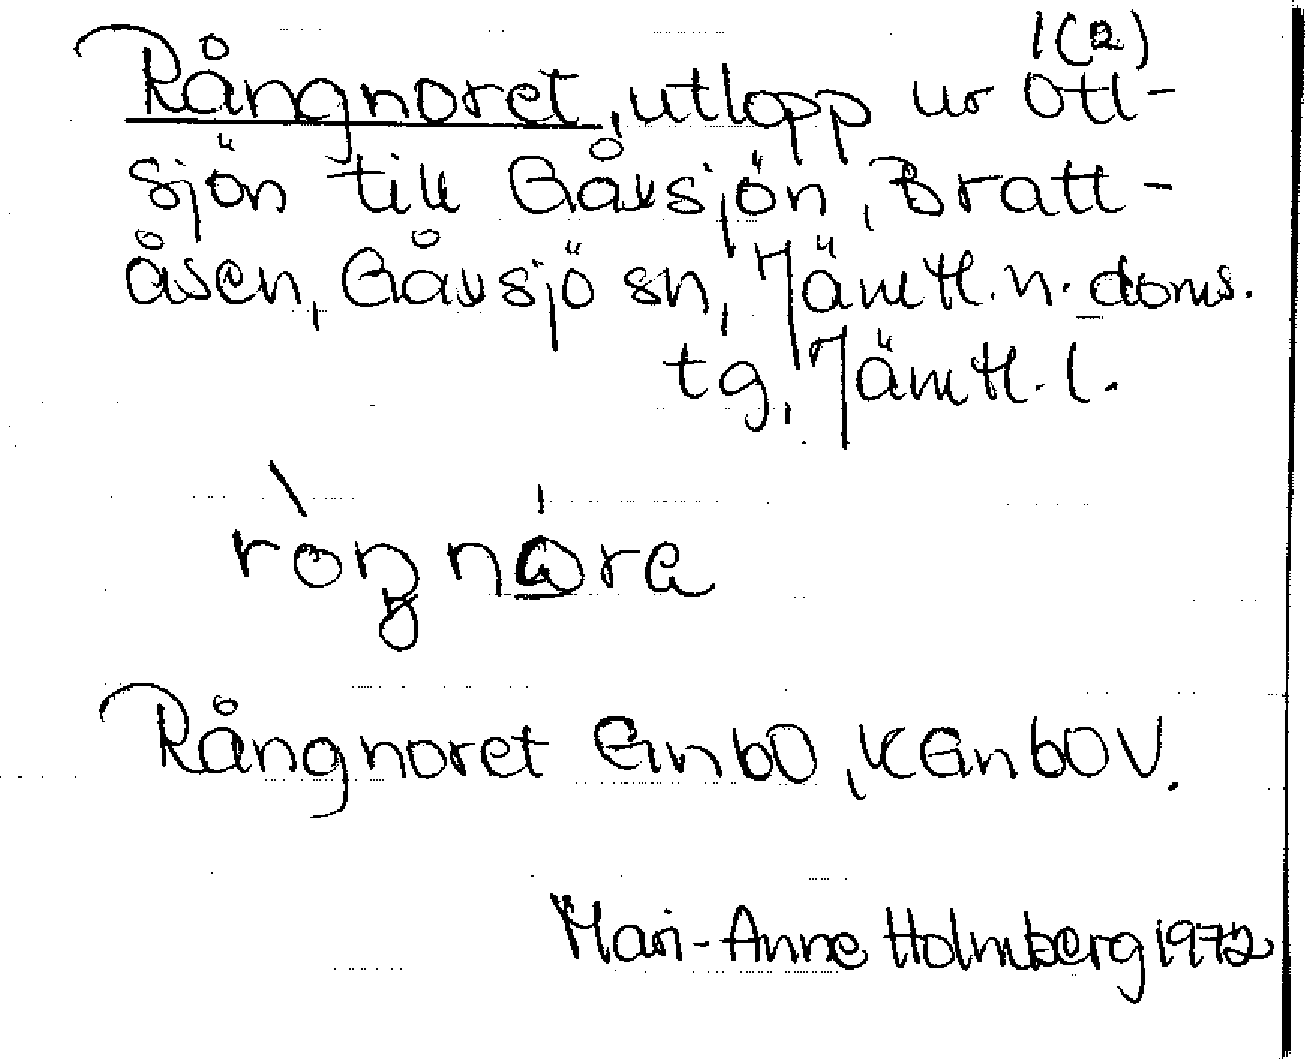 1(2)
Rångnoret, utlopp ur Ott-
sjön till Gåxsjön, Bratt-
åsen, Gåxsjö sn, Jämtl. n. doms.
tg, Jämtl. l.
Rångnoret Gnb0, KGnb0V.
Mari-Anne Holmberg 1972